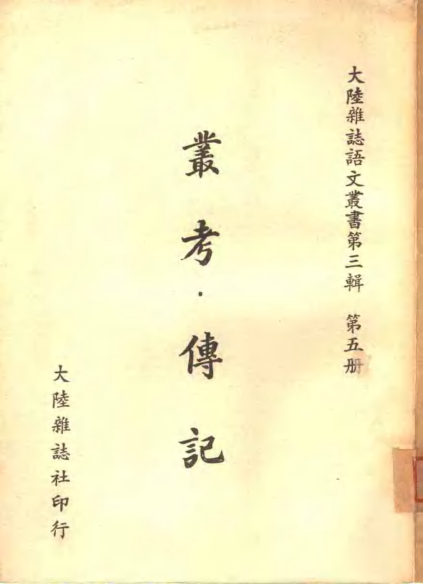 大陸雜誌語文叢書第三輯　第五册
叢考·傳記
大陸雜誌社印行